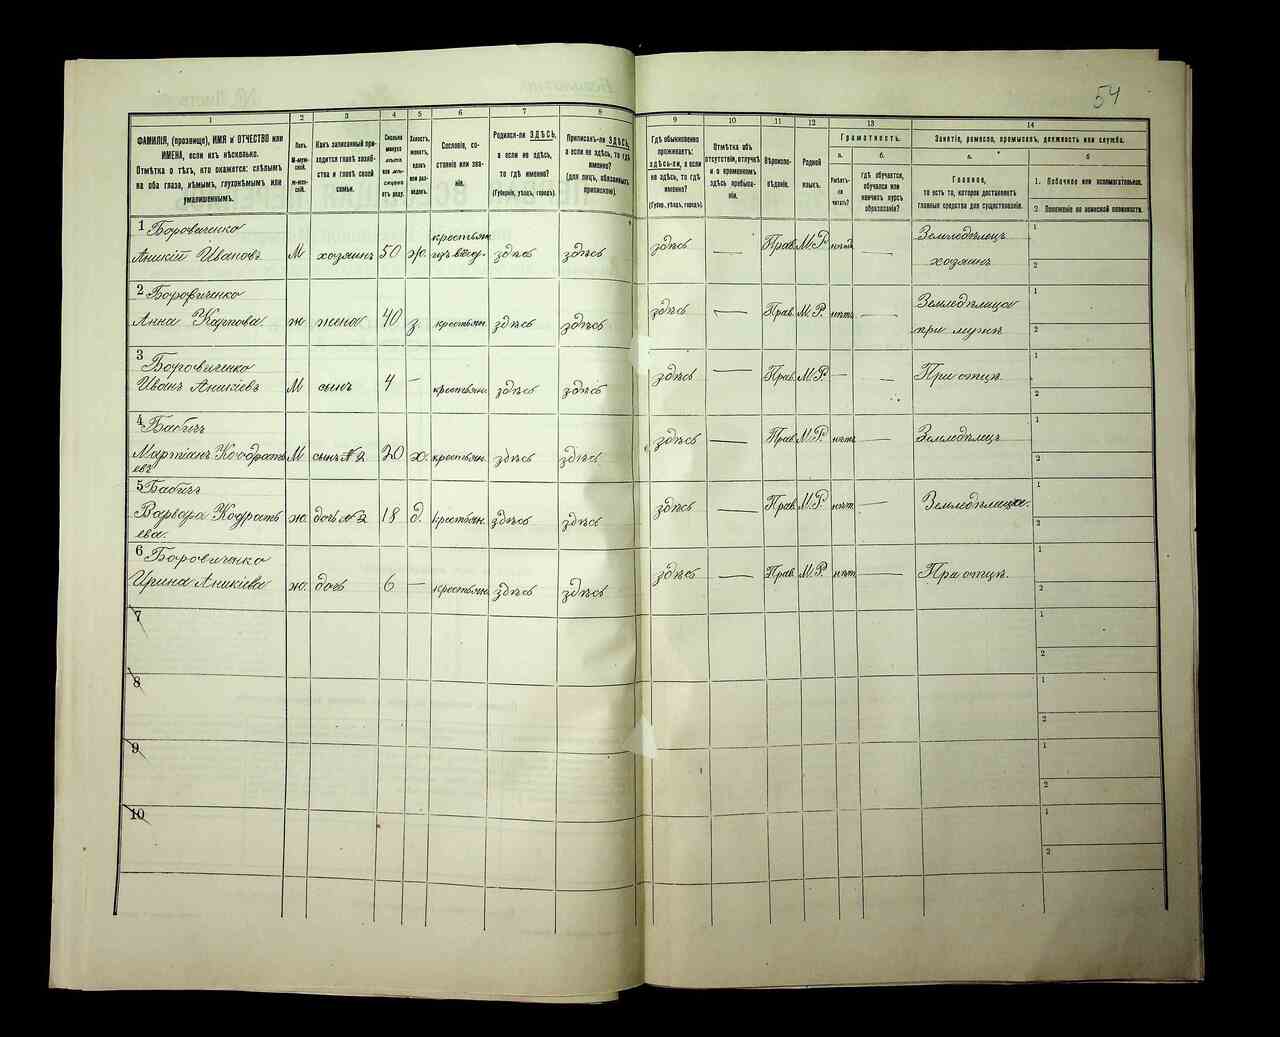 54
1 2 3 4 5 6 7 8 9 10 11 12 13 14
ФАМИЛІЯ, (прозвище), ИМЯ и ОТЧЕСТВО или
ИМЕНА, если ихъ нѣсколько.
Отмѣтка о тѣхъ, кто окажется: слѣпымъ
на оба глаза, нѣмымъ, глухонѣмымъ или
умалишеннымъ.
Полъ.
М-мужской.
ж-женскій.
Какъ записанный приходится главѣ хозяйства и главѣ своей
семьи.
Сколько
минуло
лѣтъ
или мѣсяцевъ
отъ роду.
Холостъ,
женатъ,
вдовъ
или разведенъ.
Сословіе, состояніе или званіе.
Родился-ли ЗДѢСЬ,
а если не здѣсь,
то гдѣ именно?
(Губернія, уѣздъ, городъ).
Приписанъ-ли ЗДѢСЬ,
а если не здѣсь, то гдѣ
именно?
(для лицъ, обязанныхъ
припискою).
Гдѣ обыкновенно
проживаетъ:
здѣсь-ли, а если
не здѣсь, то гдѣ
именно?
(Губер., уѣздъ, городъ).
Отмѣтка объ
отсутствіи, отлучкѣ
и о временномъ
здѣсь пребываніи.
Вѣроисповѣданіе.
Родной
языкъ.
Грамотность.
а. б.
Умѣетъ-ли
читать?
гдѣ обучается,
обучался или
кончилъ курсъ
образованія?
Занятіе, ремесло, промыселъ, должность или служба.
а. б
Главное,
то есть то, которое доставляетъ
главныя средства для существованія.
1. Побочное или вспомогательное.
2 Положеніе по воинской повинности.
1 Боровиченко крестьян. Земледѣлецъ 1
Аникій Ивановъ М хозяинъ 50 ж. здѣсь здѣсь здѣсь — Прав. М.Р. нѣтъ — хозяинъ 2
2 Боровиченко Земледѣлица 1
Анна Карпова. ж жена 40 з. крестьян. здѣсь здѣсь здѣсь — Прав. М.Р. нѣтъ — при мужѣ 2
3 Боровиченко 1
Иванъ Аникіевъ М сынъ 4 — крестьян. здѣсь здѣсь здѣсь — Прав. М.Р. — — При отцѣ. 2
4 Бабичъ 1
Мартіанъ Кодрать М сынъ №2 20 х. крестьян. здѣсь здѣсь здѣсь — Прав. М.Р. нѣтъ — Земледѣлецъ 2
евъ
5 Бабичъ 1
Варвара Кодрать ж. дочь №2 18 д. крестьян. здѣсь здѣсь здѣсь — Прав. М.Р. нѣтъ — Земледѣлица. 2
ева.
6 Боровиченко 1
Ирина Аникіева ж. дочь 6 — крестьян. здѣсь здѣсь здѣсь — Прав. М.Р. нѣтъ — При отцѣ. 2
7 1
2
8
2
9 1
2
10 1
2